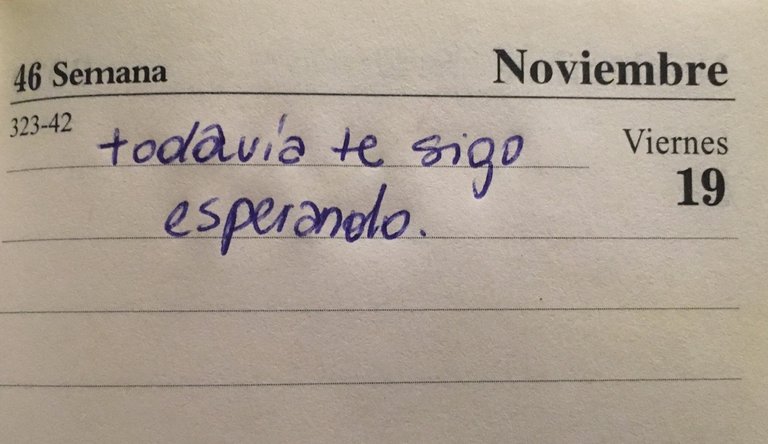 46 Semana Noviembre
323-42 Viernes
19
todavía te sigo
esperando.